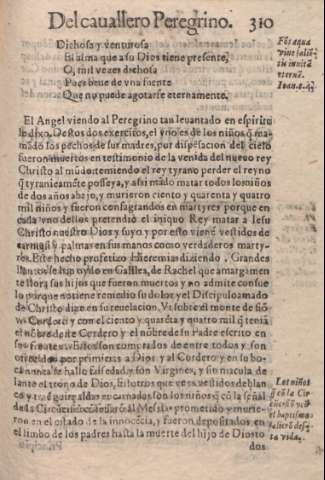 Del cauallero Peregrino. 310
Dichosa y venturosa
El alma que a su Dios tiene presente,
O, mil vezes dichosa
Pues beue de vna fuente
Que no puede agotarse eternamente.
Fõs aqua
viue saliẽ
tis in vitã
eternã.
Ioan. 4.
El Angel viendo al Peregrino tan leuantado en espiritu
le dixo. Destos dos exercitos, el vno es de los niños q̃ ma-
mãdo los pechos de sus madres, por dispẽsacion del cielo
fueron muertos en testimonio de la venida del nueuo rey
Christo al mũdo: temiendo el rey tyrano perder el reyno
q̃ tyranicamẽte posseya, y assi mãdo matar todos los niños
de dos años abajo, y murieron ciento y quarenta y quatro
mil niños y fueron consagrandos en martyres porque en
cada vno dellos pretendio el iniquo Rey matar a Iesu
Christo nuestro Dios y suyo y por esto vienẽ vestidos de
y palmas en sus manos como verdaderos marty-
res. Este hecho profetizo Hieremias diziendo. Grandes
se han oydo en Galilea, de Rachel que amargamen
te llora sus hijos que fueron muertos y no admite consue
lo porque no tiene remedio su dolor y el Discipulo amado
de Christo dize en su reuelacion. Vi sobre el monte de siõ
vn Cordero y con el ciento y quarẽta y quatro mil q̃ teniã
el nõbre deste Cordero y el nõbre de su Padre escrito en
su frente. Estos son comprados de entre todos y son
por primicias a Dios y al Cordero y en su bo-
ca no se hallo falsedad, son Virgines, y sin macula de-
lante el trono de Dios, Estotros que veys vestidos de blan
co y traẽ guirnaldas encarnados son los niños q̃ cõ la señal
de la Circuncision al Messias prometido y murie-
ron en el estado de la innocẽcia, y fueron depositados en
el limbo de los padres hasta la muerte del hijo de Dios to
dos
Los niños
q̃ cõ la Cir
cũcisiõ
el baptismo
saliero desta
vida.